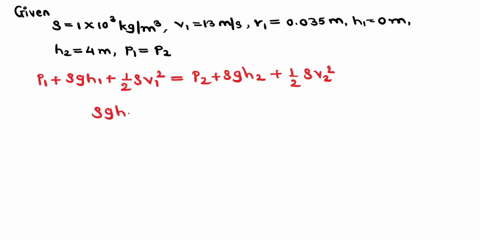 Given
S = 1 × 10³ kg/m³, v₁ = 13 m/s, r₁ = 0.035 m, h₁ = 0 m,
h₂ = 4 m, P₁ = P₂
P₁ + Sgh₁ + 1/2 Sv₁² = P₂ + Sgh₂ + 1/2 Sv₂²
Sgh.